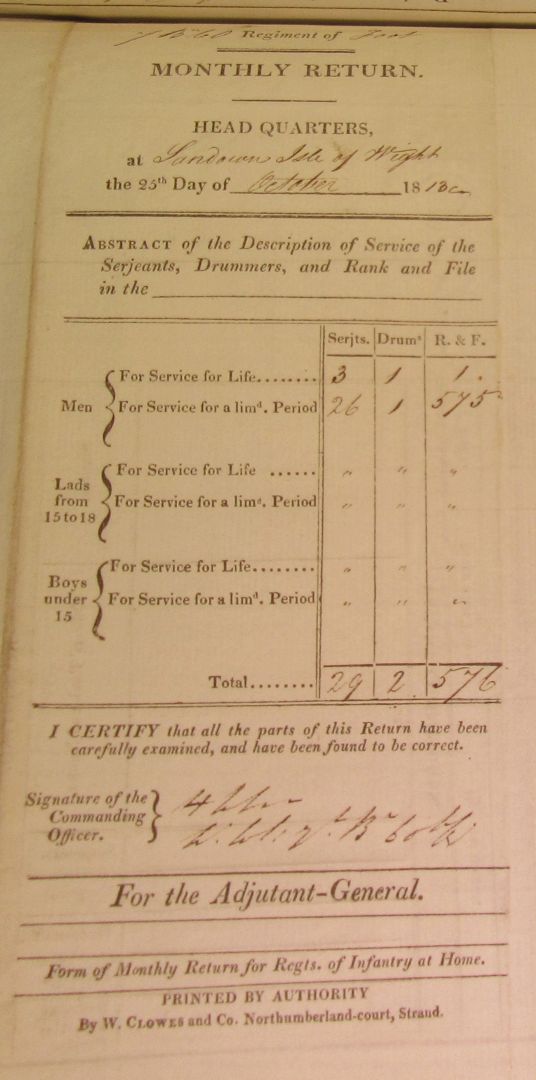 7 Bn 60 Regiment of Foot
MONTHLY RETURN.
HEAD QUARTERS,
at Sandown Isle of Wight
the 25th Day of October 1813
ABSTRACT of the Description of Service of the
Serjeants, Drummers, and Rank and File
in the
Serjts. Drums R. & F.
Men
For Service for Life........ 3 1 1.
For Service for a limd. Period 26 1 575
Lads from 15 to 18
For Service for Life ...... " " "
For Service for a limd. Period " " "
Boys under 15
For Service for Life........ " " "
For Service for a limd. Period " " "
Total........ 29 2 576
I CERTIFY that all the parts of this Return have been
carefully examined, and have been found to be correct.
Signature of the
Commanding
Officer.
Bn 60th
For the Adjutant-General.
Form of Monthly Return for Regts. of Infantry at Home.
PRINTED BY AUTHORITY
By W. CLOWES and Co. Northumberland-court, Strand.